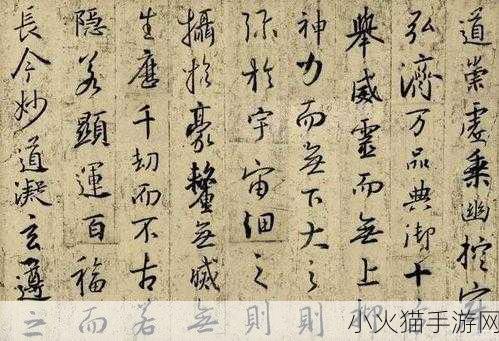 道崇虛乘幽控
弘濟万品典御十
舉威靈而無上抑
神力而無下大之則
弥於宇宙細之則
攝於豪氂無滅無
生歷千劫而不古若
隱若顯運百福而
長今妙道凝玄遵之
小火猫手游网